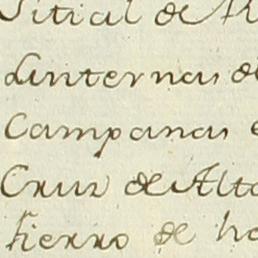 Sitial de
Linternas de
Campanas
Cruz de Alta
fierro de